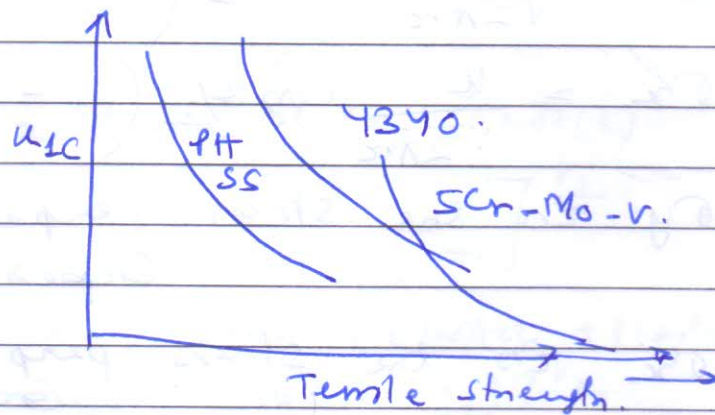 K1C
PH
SS
4340.
5Cr-Mo-V.
Tensile strength.